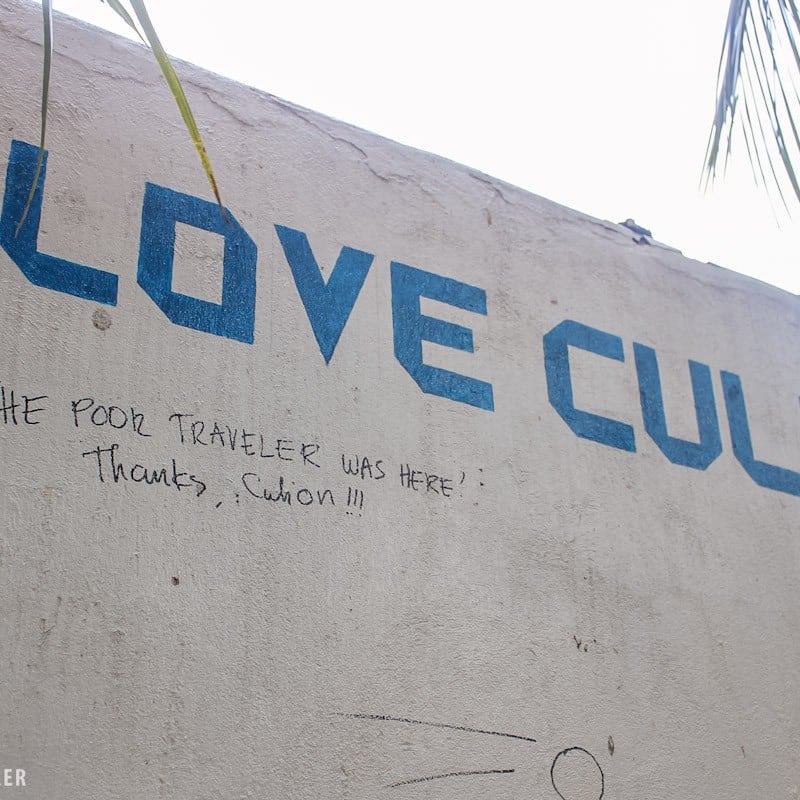 LOVE CUL
HE POOR TRAVELER WAS HERE!
Thanks, Culion!!!
ER